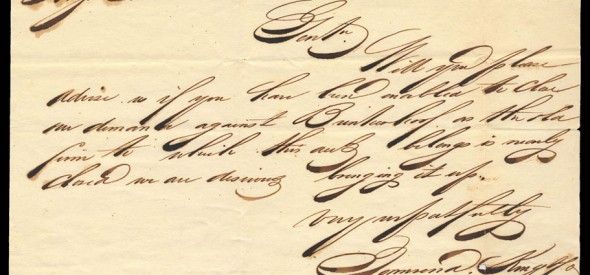 Gentn.
Will you please
advise us if you have been enabled to close
our demand against as the old
firm to which this acct belongs is nearly
closed we are desirous bringing it up.
very respectfully